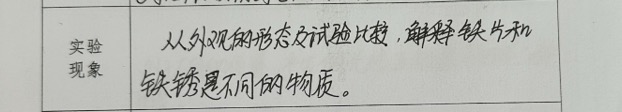 实验
现象
从外观的形态及试验比较,解释铁片和
铁锈是不同的物质。